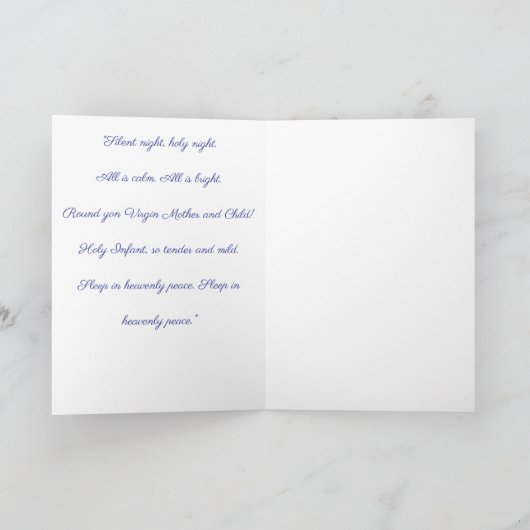 "Silent night, holy night.
All is calm, All is bright.
Round yon Virgin Mother and Child!
Holy Infant, so tender and mild.
Sleep in heavenly peace. Sleep in
heavenly peace."